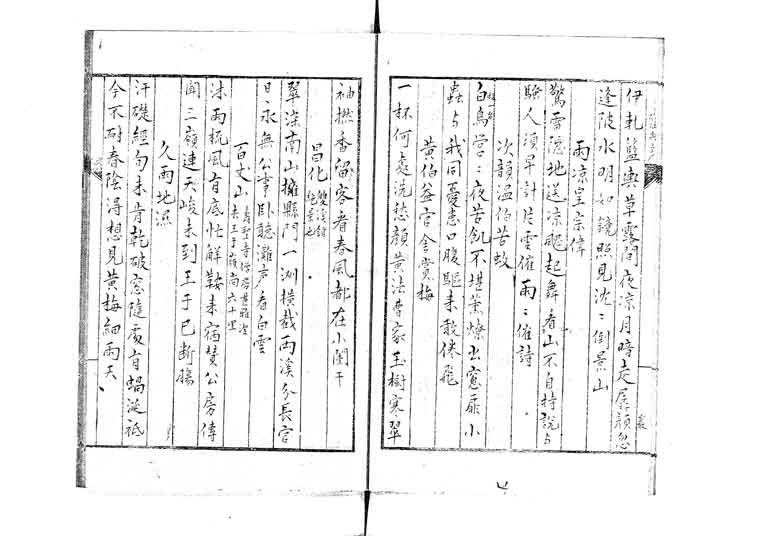 伊軋藍輿草露間夜凉月暗走孱顔忽
逢陂水明如鏡照見沈〻倒景山
雨凉呈宗偉
驚雷隱地送凉颸起舞看山不自持說与
騷人須早計片雲催雨〻催詩
次韻温伯苦蚊
白鳥營〻夜苦飢不堪薰燎出窻扉小
蟲与我同憂患口腹驅来敢倦飛
黄伯益官舍賞梅
一杯何處洗愁顔黄法曹家玉樹寒翠
袖撚香留客看春風都在小闌干
昌化
翠深南山擁縣門一洲横截兩溪分長官
日永無公事卧聽灘声看白雲
百丈山
未至于嶺尚六十里
沐雨梳風有底忙解鞍来宿贊公房傳
聞三嶺連天峻未到王于已断腸
久雨地濕
汗礎經旬未肯乾破窓隨處有蝸涎祗
今不耐春陰得想見黄梅細雨天